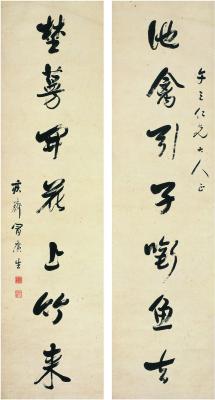 午三仁兄大人正
池禽引子衔鱼去
野蔓开花上竹来
疚斋冒广生